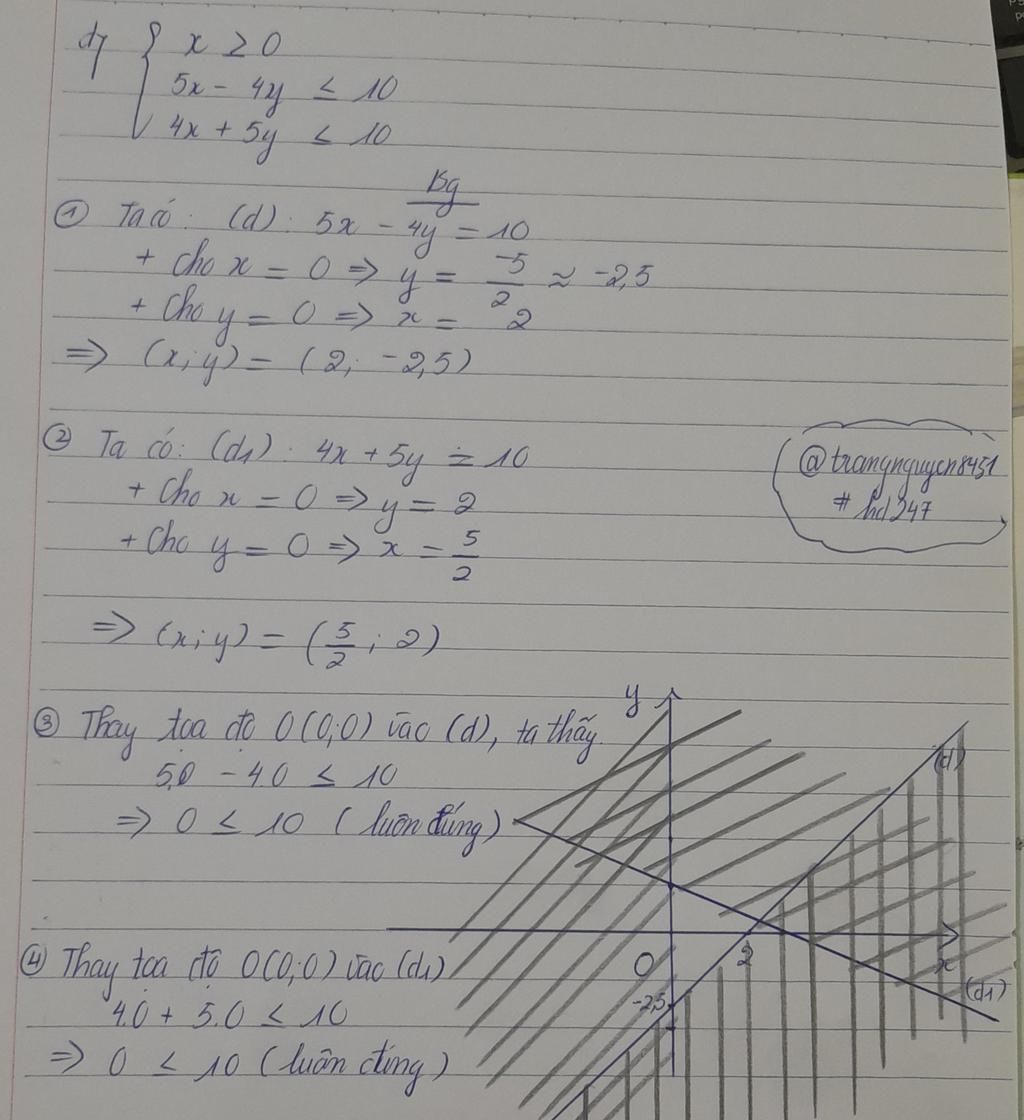 d) { x ≥ 0
5x - 4y ≤ 10
4x + 5y ≤ 10
Bg
① Ta có: (d): 5x - 4y = 10
+ Cho x = 0 ⇒ y = -5/2 ≈ -2,5
+ Cho y = 0 ⇒ x = 2
⇒ (x;y) = (2; -2,5)
② Ta có: (d1): 4x + 5y = 10
+ Cho x = 0 ⇒ y = 2
+ Cho y = 0 ⇒ x = 5/2
⇒ (x;y) = (5/2; 2)
@trangnguyen8451
# hd247
③ Thay tọa độ O(0;0) vào (d), ta thấy
5.0 - 4.0 ≤ 10
⇒ 0 ≤ 10 (luôn đúng)
④ Thay tọa độ O(0;0) vào (d1)
4.0 + 5.0 ≤ 10
⇒ 0 ≤ 10 (luôn đúng)
y
(d)
O
2
x
-2,5
(d1)